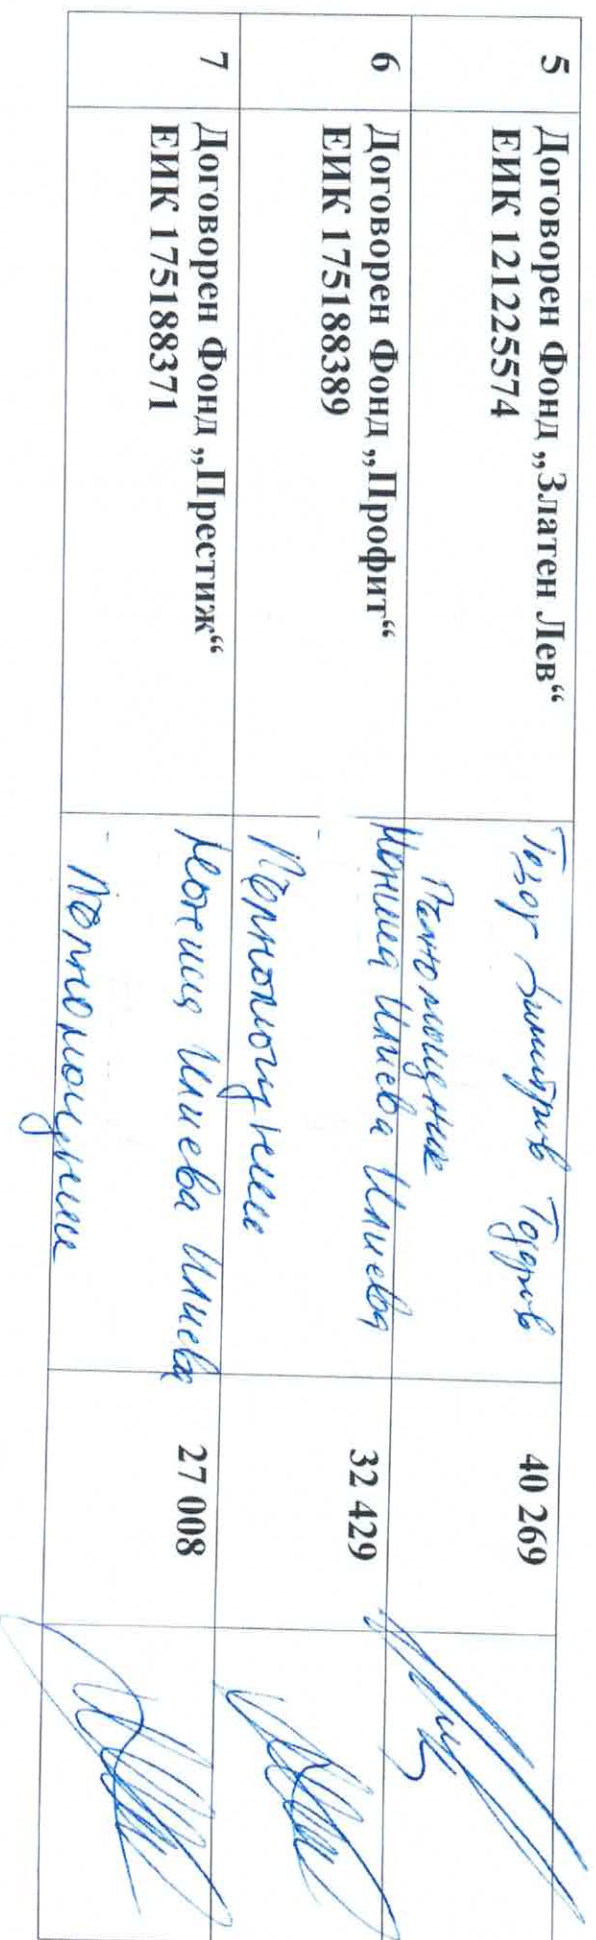 5
Договорен Фонд „Златен Лев“
ЕИК 121225574
Тодор Димитров Тодоров
Пълномощник
40 269
6
Договорен Фонд „Профит“
ЕИК 175188389
Илиева Илиева
Пълномощник
32 429
7
Договорен Фонд „Престиж“
ЕИК 175188371
Илиева Илиева
- Пълномощник
27 008